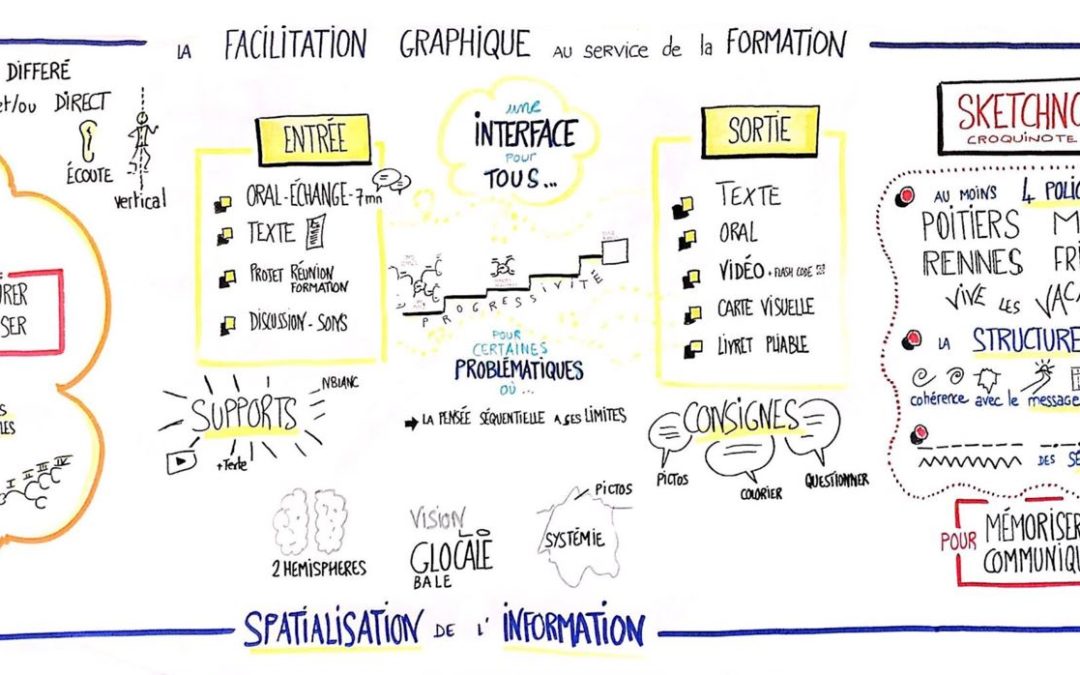 LA FACILITATION GRAPHIQUE AU SERVICE de la FORMATION
DIFFERÉ
et/ou DIRECT
ÉCOUTE
vertical
RER
SER
S
LES
I II III IV
ENTRÉE
ORAL-ÉCHANGE-7mn
TEXTE
PROJET RÉUNION
FORMATION
DISCUSSION-SONS
SUPPORTS
NBLANC
+Texte
une
INTERFACE
POUR
TOUS...
PROGRESSIVITÉ
POUR
CERTAINES
PROBLÉMATIQUES
OÙ...
LA PENSÉE SÉQUENTIELLE A SES LIMITES
2 HEMISPHERES
VISION
GLOCALE
BALE
PICTOS
SYSTÉMIE
SORTIE
TEXTE
ORAL
VIDÉO + FLASH CODE
CARTE VISUELLE
LIVRET PLIABLE
CONSIGNES
PICTOS
COLORIER
QUESTIONNER
SKETCHNO
CROQUINOTE
AU MOINS 4 POLIC
POITIERS M
RENNES FR
VIVE LES VACA
LA STRUCTURE
cohérence avec le message
DES SÉ
POUR MÉMORISER
COMMUNIQU
SPATIALISATION DE L' INFORMATION